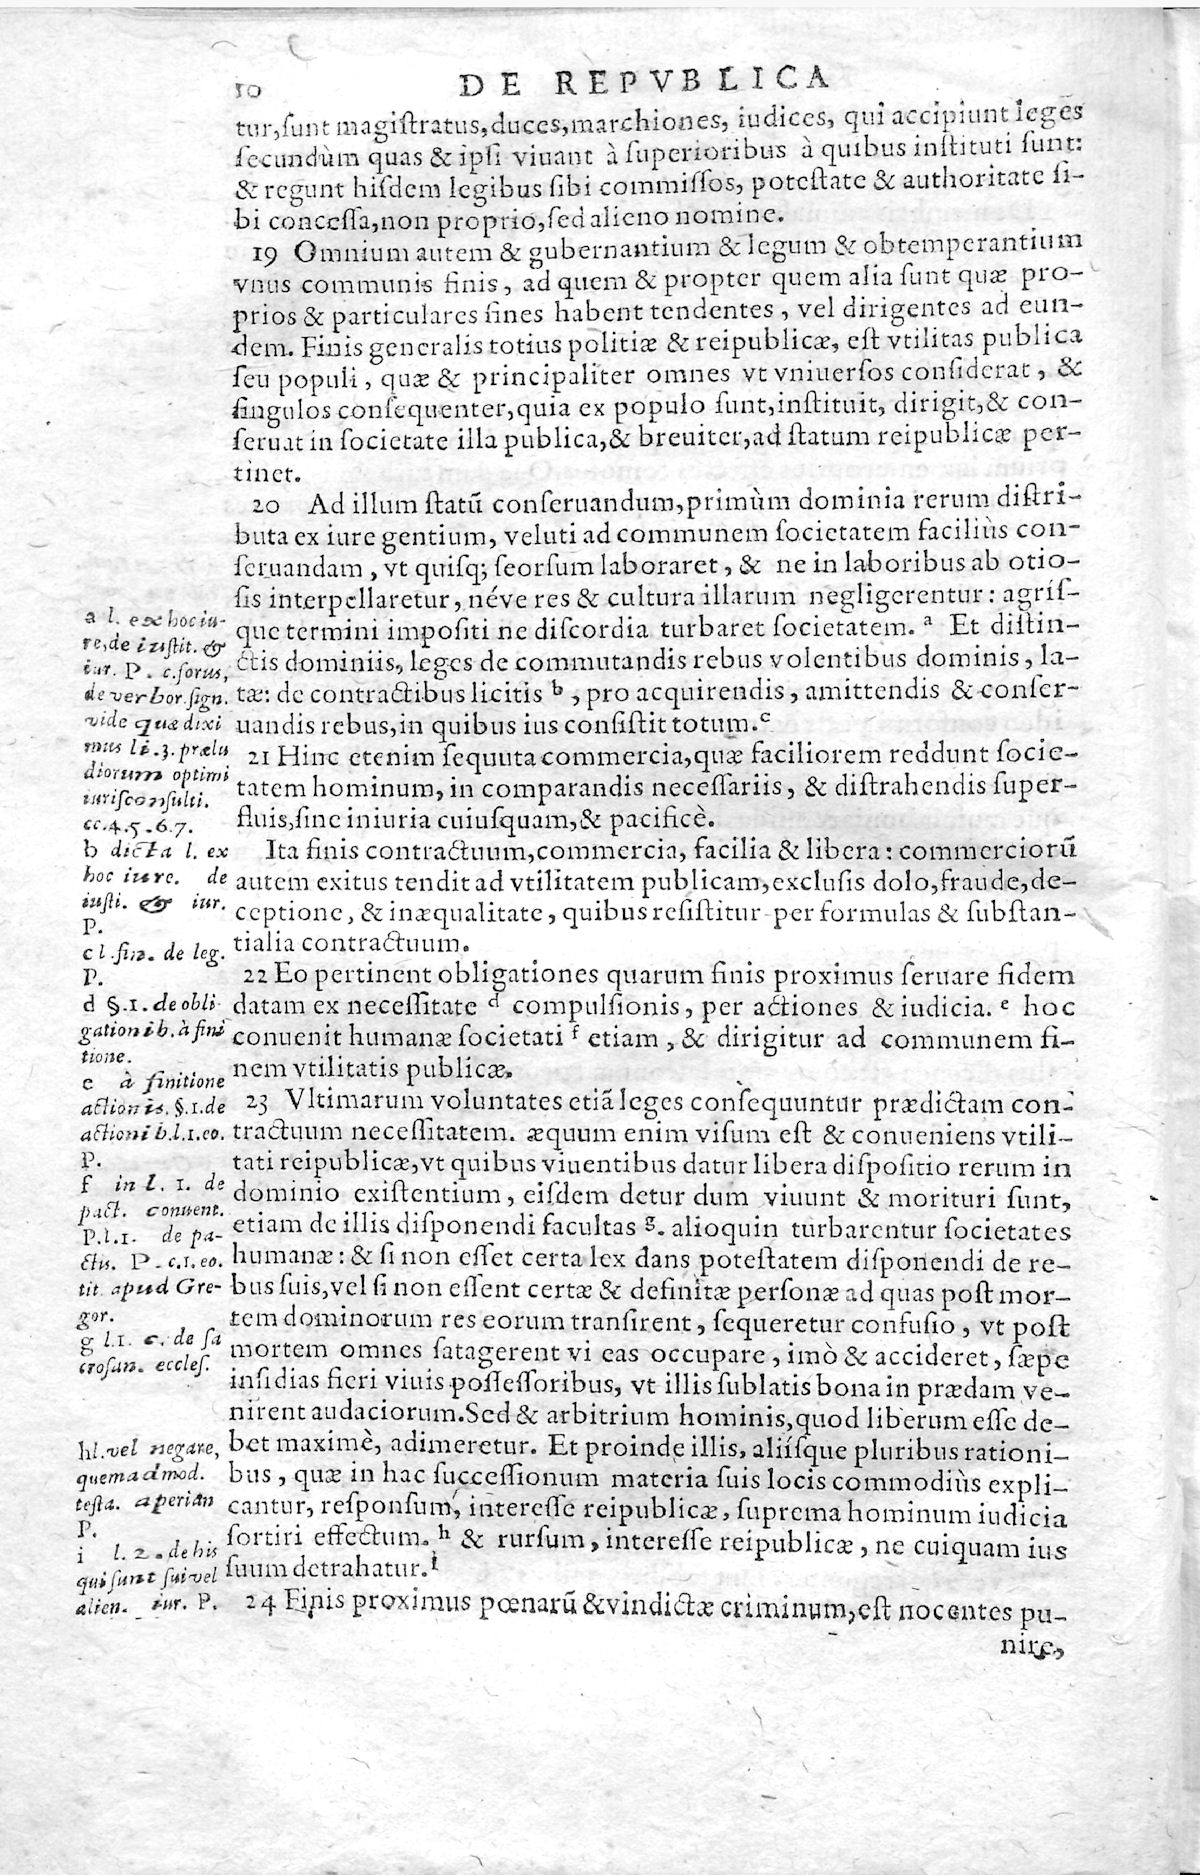 10 DE REPVBLICA
tur,ſunt magiſtratus,duces,marchiones, iudices, qui accipiunt leges
ſecundùm quas & ipſi viuant à ſuperioribus à quibus inſtituti ſunt:
& regunt hiſdem legibus ſibi commiſſos, poteſtate & authoritate ſi-
bi conceſſa,non proprio,ſed alieno nomine.
19 Omnium autem & gubernantium & legum & obtemperantium
vnus communis finis, ad quem & propter quem alia ſunt quæ pro-
prios & particulares fines habent tendentes, vel dirigentes ad eun-
dem. Finis generalis totius politiæ & reipublicæ, eſt vtilitas publica
ſeu populi, quæ & principaliter omnes vt vniuerſos conſiderat, &
ſingulos conſequenter,quia ex populo ſunt,inſtituit, dirigit,& con-
ſeruat in ſocietate illa publica,& breuiter,ad ſtatum reipublicæ per-
tinet.
20 Ad illum ſtatũ conſeruandum,primùm dominia rerum diſtri-
buta ex iure gentium, veluti ad communem ſocietatem faciliùs con-
ſeruandam, vt quiſq; ſeorſum laboraret, & ne in laboribus ab otio-
ſis interpellaretur, néve res & cultura illarum negligerentur: agríſ-
que termini impoſiti ne diſcordia turbaret ſocietatem. a Et diſtin-
ctis dominiis, leges de commutandis rebus volentibus dominis, la-
tæ: de contractibus licitis b, pro acquirendis, amittendis & conſer-
uandis rebus,in quibus ius conſiſtit totum. c
21 Hinc etenim ſequuta commercia,quæ faciliorem reddunt ſocie-
tatem hominum, in comparandis neceſſariis, & diſtrahendis ſuper-
fluis,ſine iniuria cuiuſquam,& pacificè.
Ita finis contractuum,commercia, facilia & libera: commerciorũ
autem exitus tendit ad vtilitatem publicam,excluſis dolo,fraude,de-
ceptione, & inæqualitate, quibus reſiſtitur per formulas & ſubſtan-
tialia contractuum.
22 Eo pertinent obligationes quarum finis proximus ſeruare fidem
datam ex neceſſitate d compulſionis, per actiones & iudicia. e hoc
conuenit humanæ ſocietati f etiam, & dirigitur ad communem fi-
nem vtilitatis publicæ.
23 Vltimarum voluntates etiã leges conſequuntur prædictam con-
tractuum neceſſitatem. æquum enim viſum eſt & conueniens vtili-
tati reipublicæ,vt quibus viuentibus datur libera diſpoſitio rerum in
dominio exiſtentium, eiſdem detur dum viuunt & morituri ſunt,
etiam de illis diſponendi facultas g. alioquin turbarentur ſocietates
humanæ: & ſi non eſſet certa lex dans poteſtatem diſponendi de re-
bus ſuis,vel ſi non eſſent certæ & definitæ perſonæ ad quas poſt mor-
tem dominorum res eorum tranſirent, ſequeretur confuſio, vt poſt
mortem omnes ſatagerent vi eas occupare, imò & accideret, ſæpe
inſidias fieri viuis poſſeſſoribus, vt illis ſublatis bona in prædam ve-
nirent audaciorum.Sed & arbitrium hominis,quod liberum eſſe de-
bet maximè, adimeretur. Et proinde illis, aliíſque pluribus rationi-
bus, quæ in hac ſucceſſionum materia ſuis locis commodiùs expli-
cantur, reſponſum, intereſſe reipublicæ, ſuprema hominum iudicia
ſortiri effectum. h & rurſum, intereſſe reipublicæ, ne cuiquam ius
ſuum detrahatur. i
24 Finis proximus pœnarũ & vindictæ criminum, eſt nocentes pu-
nire,
a l. ex hoc iu-
re,de iuſtit. &
iur. P. c.forus,
de verbor.ſign.
vide quæ dixi
mus li.3.prælu
diorum optimi
iuriſconſulti.
cc.4.5.6.7.
b dicta l. ex
hoc iure. de
iuſti. & iur.
P.
c l.fin. de leg.
P.
d §.1. de obli
gationib. à fini
tione.
e à finitione
actionis.§.1.de
actionib.l.1.eo.
P.
f in l. 1. de
pact. conuent.
P.l.1. de pa-
ctis. P. c.1.eo.
tit. apud Gre-
gor.
g l.1. c. de ſa
croſan. eccleſ.
h l. vel negare,
quemadmod.
teſta. aperian
P.
i l. 2. de his
qui ſunt ſui vel
alien. iur. P.